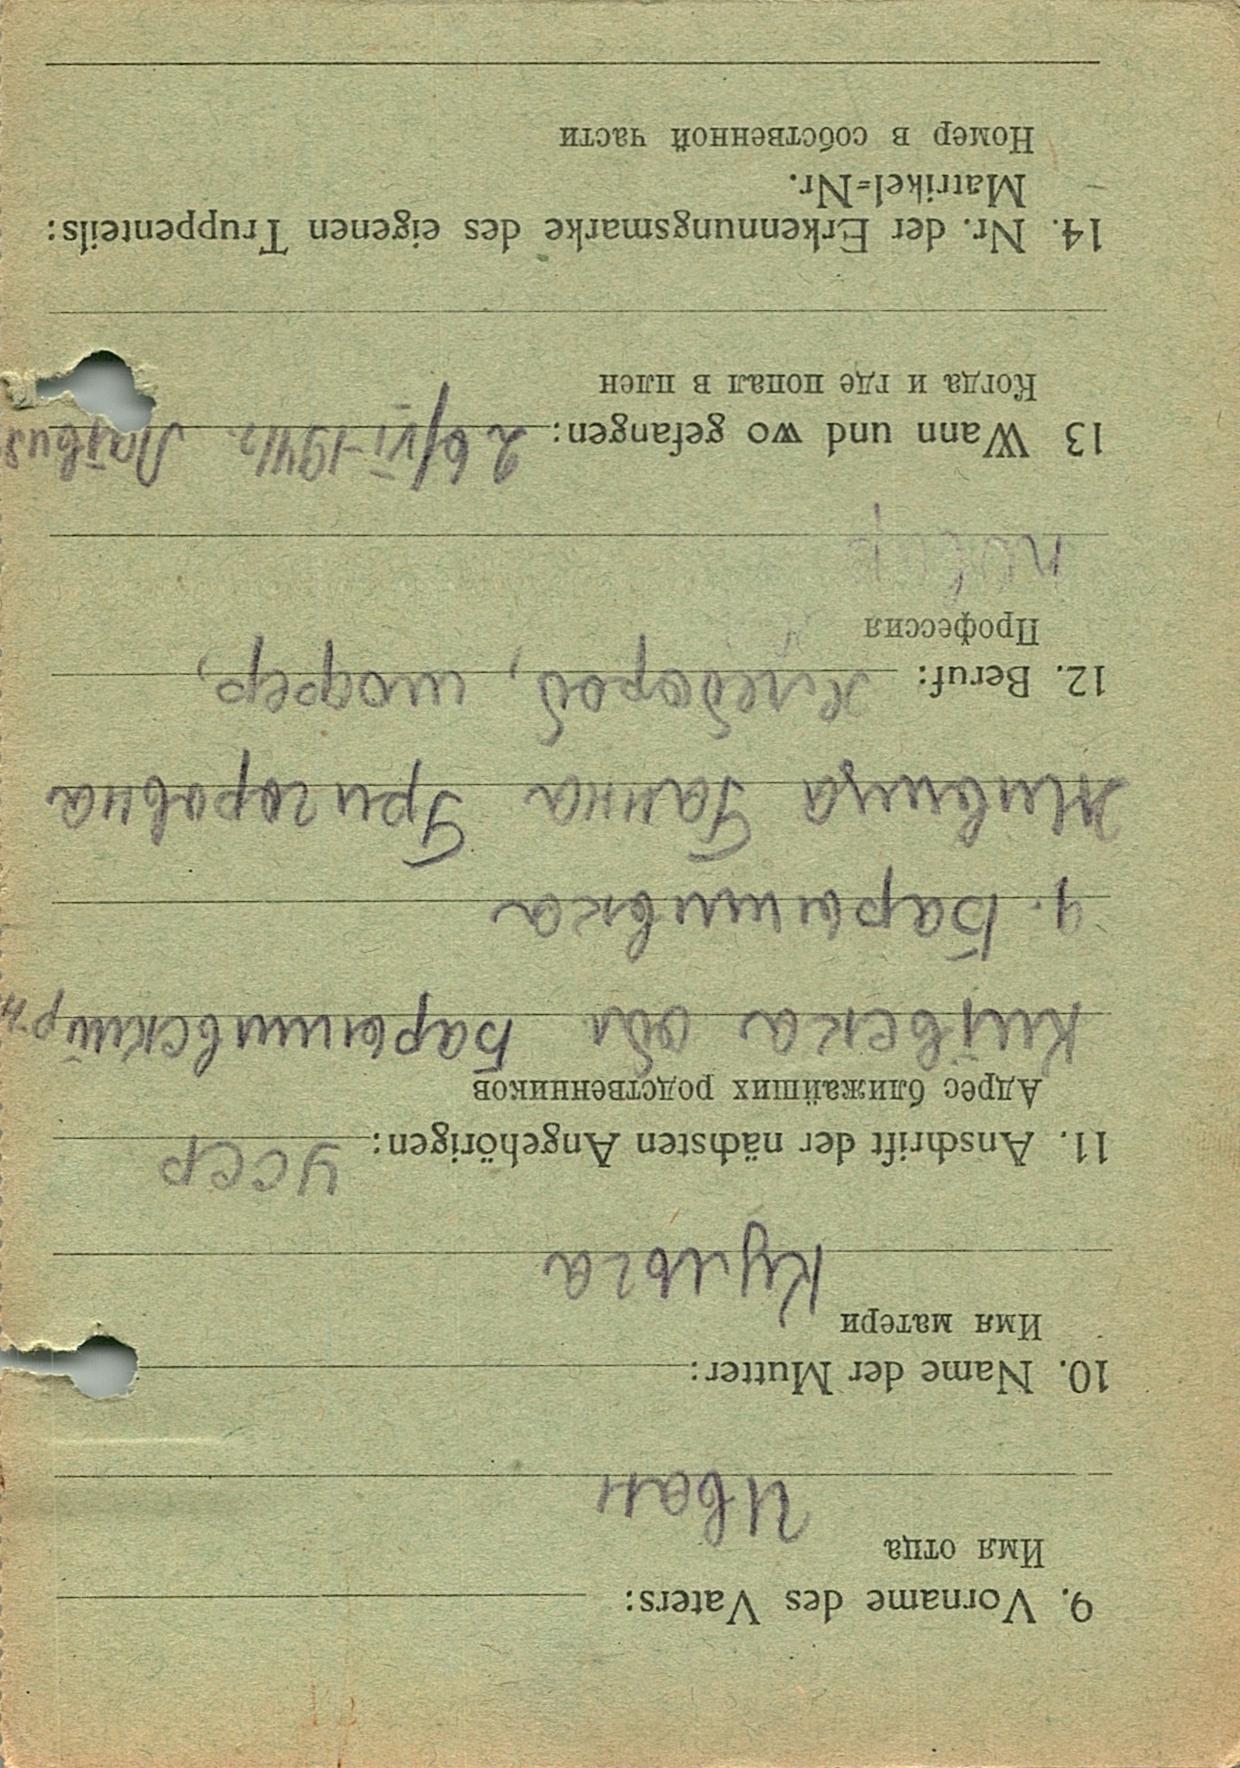 9. Vorname des Vaters:
Имя отца
Иван
10. Name der Mutter:
Имя матери
Кульга
11. Anschrift der nächsten Angehörigen: УССР
Адрес ближайших родственников
Киівска обл Барышивский р-н
Барышивка
Живица Ганна Григоровна
12. Beruf: хлебороб, шофер,
Профессия
13 Wann und wo gefangen: 26/VI-1941г. Латвия
Когда и где попал в плен
14. Nr. der Erkennungsmarke des eigenen Truppenteils:
Matrikel=Nr.
Номер в собственной части